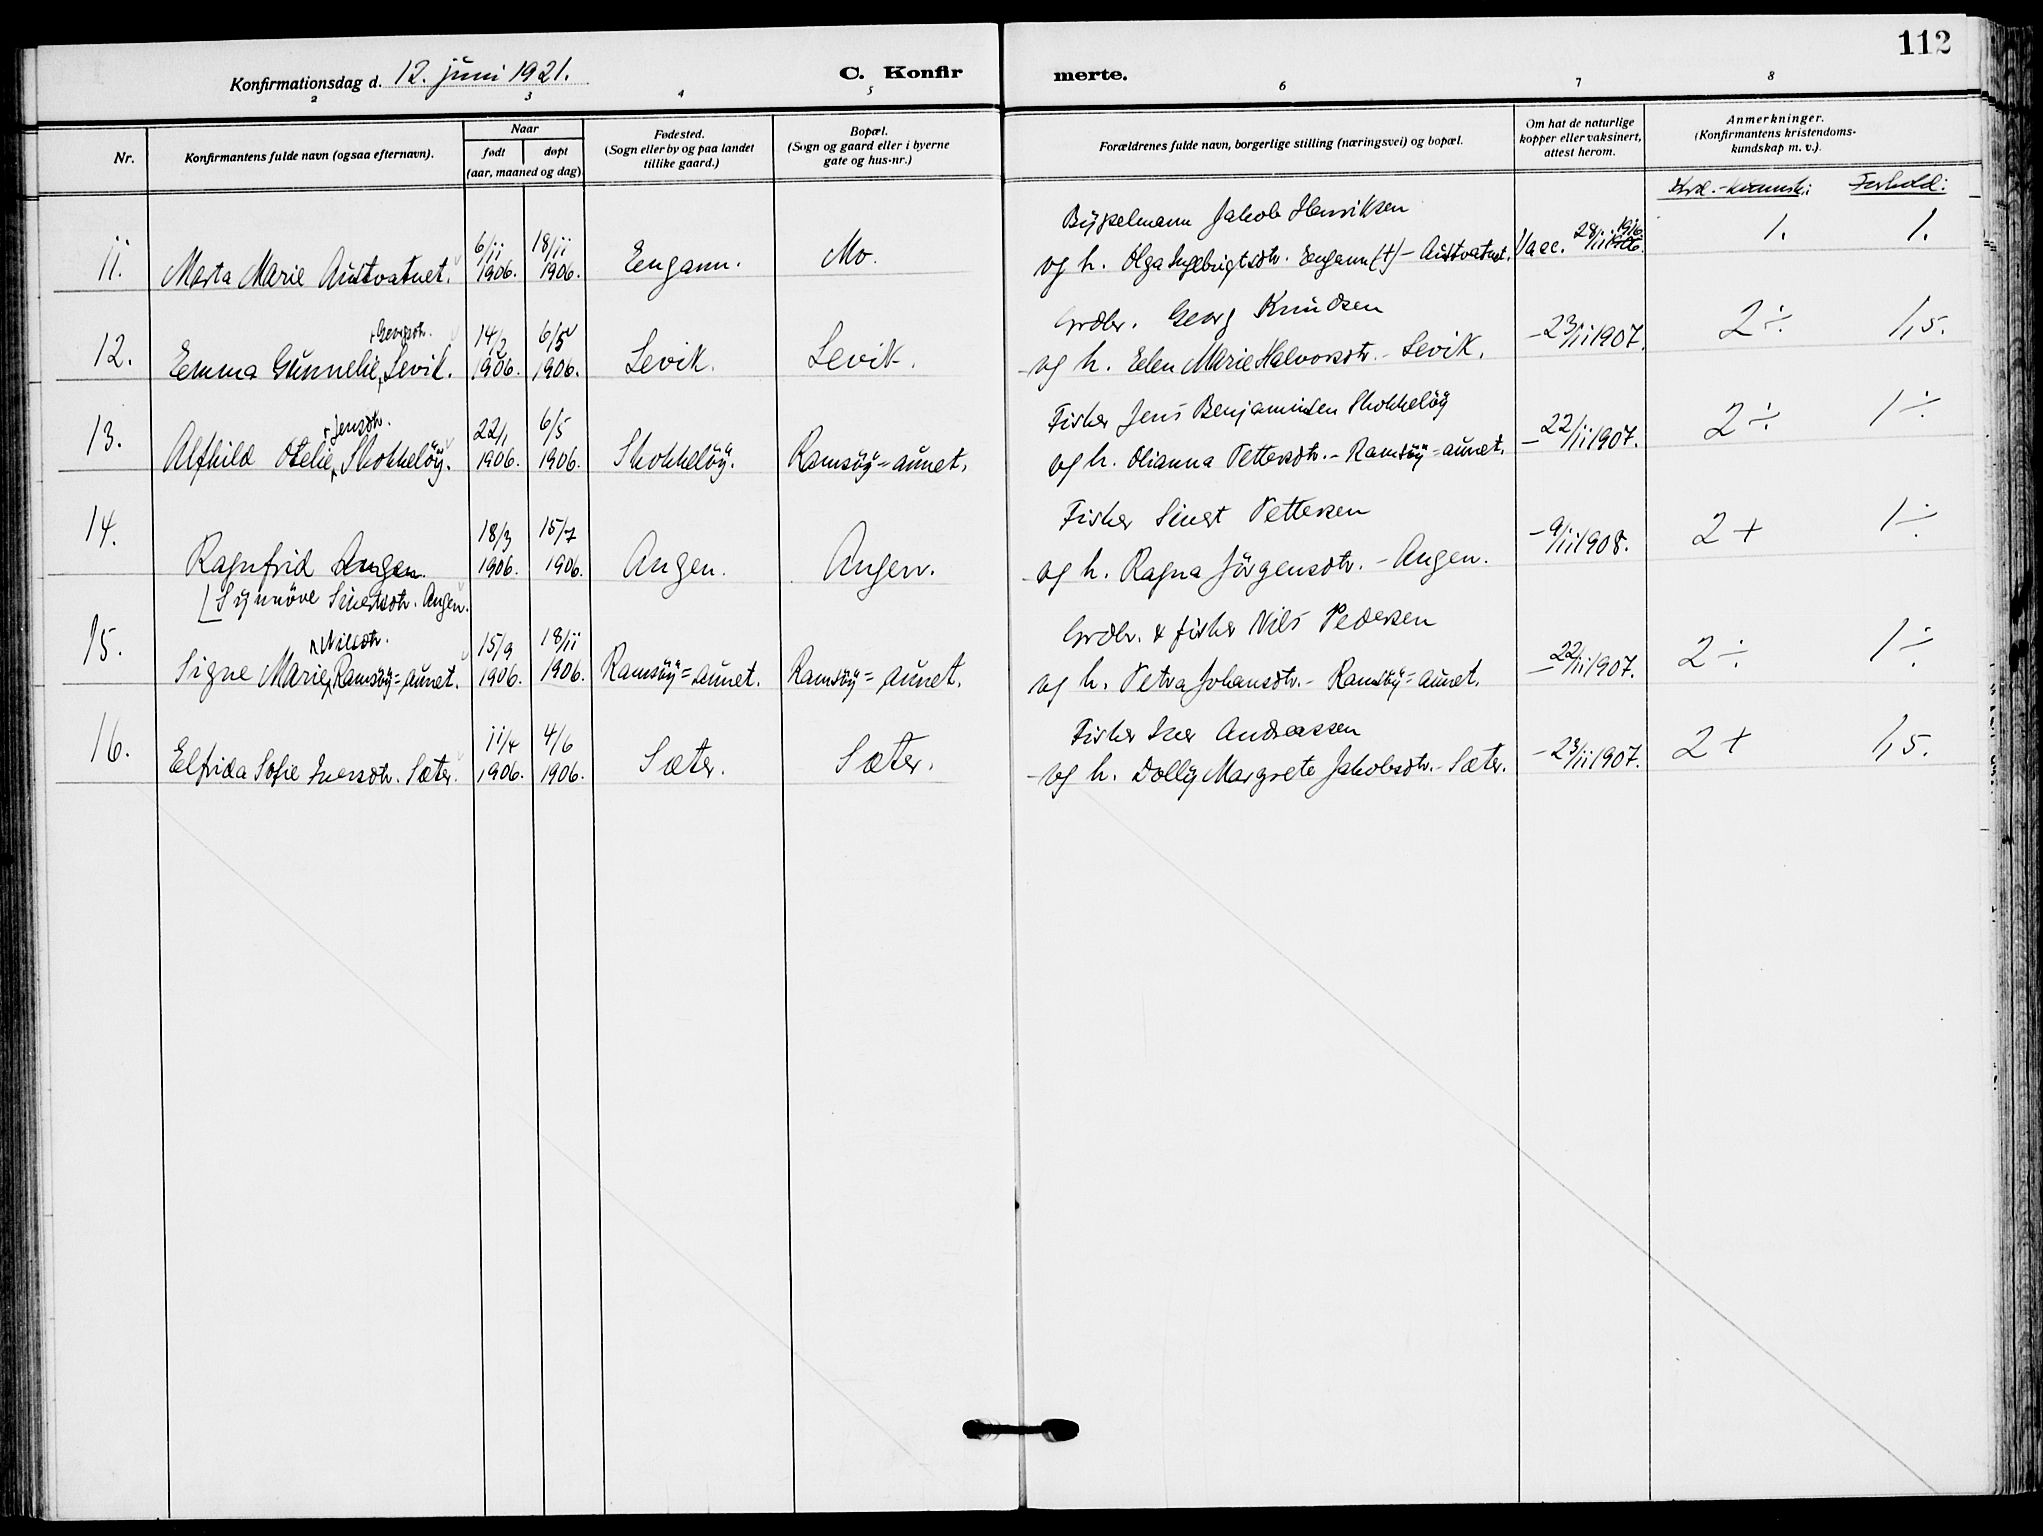 112
Konfirmationsdag d. 12. juni 1921. C. Konfir merte.
2 3 4 5 6 7 8
Nr.
Konfirmantens fulde navn (ogsaa efternavn).
Naar
født døpt
(aar, maaned og dag)
Fødested.
(Sogn eller by og paa landet
tillike gaard.)
Bopæl.
(Sogn og gaard eller i byerne
gate og hus-nr.)
Forældrenes fulde navn, borgerlige stilling (næringsvei) og bopæl.
Om hat de naturlige
kopper eller vaksinert,
attest herom.
Anmerkninger.
(Konfirmantens kristendoms-
kundskap m. v.).
Forhold:
Jakob Henriksen
6/11 18/11 Mo. 28/11 1916 1. 1.
11. Marta Marie Austvatnet. 1906. 1906. Engann. og h. Olga Ingebrigtsdtr. Engann (†) – Austvatnet. Vacc.
Georgsdtr. Grdbr. Georg Knudsen
12. 14/2 6/5 – 23/11 1907. 2 ÷ 1,5.
Emma Gunnelie Levik. 1906. 1906. Levik. Levik. og h. Elen Marie Halvorsdtr. – Levik.
Jensdtr. Fisker Jens Benjaminsen Skokkeløy
13. 22/1 6/5 – 22/11 1907. 2 ÷ 1 ÷
Alfhild Otelie Skokkeløy. 1906. 1906. Skokkeløy. Ramsøy=aunet. og h. Olianna Pettersdtr. – Ramsøy=aunet.
14. 18/3 15/7 Fisker Sivert Pettersen – 9/11 1908. 2 + 1 ÷
Ragnfrid Angen. 1906. 1906. Angen. Angen. og h. Ragna Jörgensdtr. – Angen.
Synnöve Sivertsdtr. Angen.
Nilsdtr. Grdbr. & fisker Nils Pedersen
15. 15/9 18/11 – 22/11 1907. 2 ÷ 1 ÷
Signe Marie Ramsøy=aunet. 1906. 1906. Ramsøy=aunet. Ramsøy=aunet. og h. Petra Johansdtr. – Ramsøy=aunet.
16. 11/4 4/6 Fisker Iver Andreassen – 23/11 1907. 2 + 1,5.
Elfrida Sofie Iversdtr. Sæter. 1906. 1906. Sæter. Sæter. og h. Dolly Margrete Jakobsdtr. – Sæter.